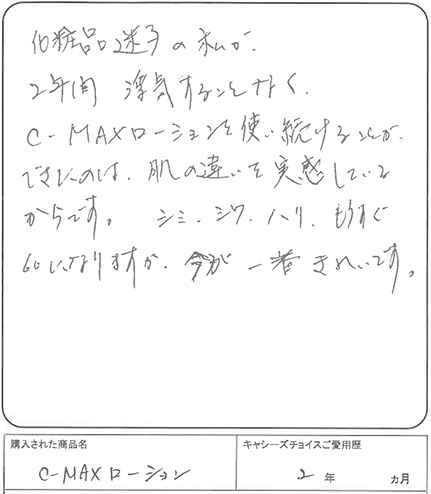 化粧品迷子の私が、
2年間 浮気することなく、
C-MAXローションを使い続けることが、
できたのは、肌の違いを実感している
からです。 シミ、シワ、ハリ、もうすぐ
60になりますが、今が 一番 きれいです。
購入された商品名
キャシーズチョイスご愛用歴
C-MAXローション
2 年 ヵ月